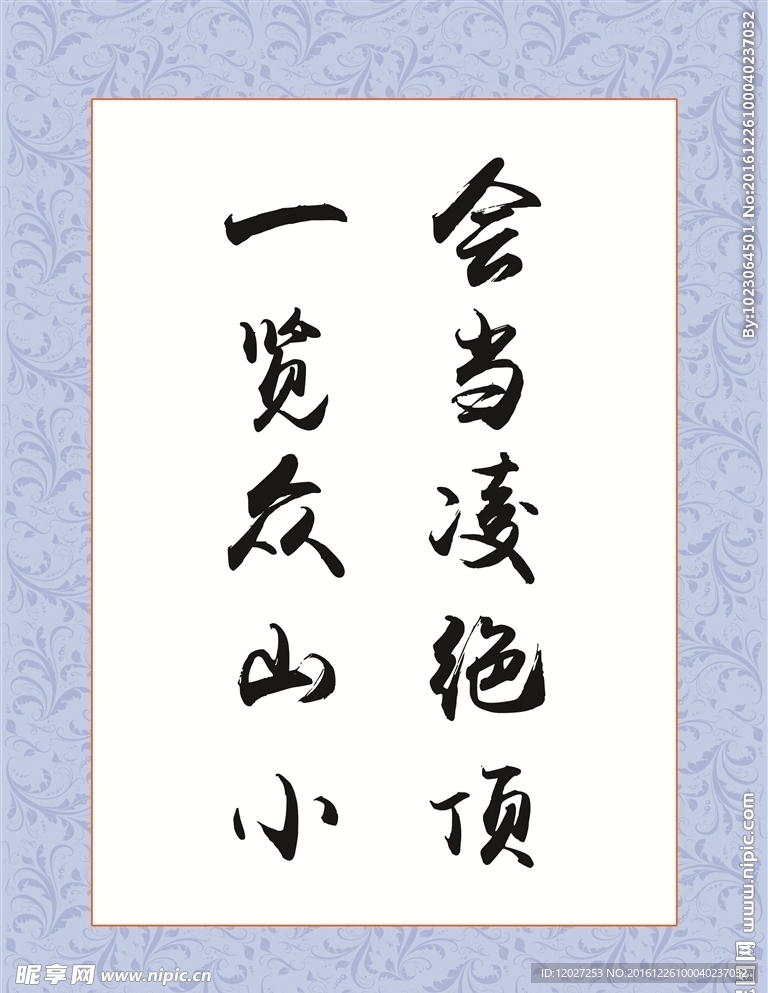 会当凌绝顶
一览众山小
By:1023064501 No:20161226100040237032
www.nipic.com
昵图网
昵享网 www.nipic.cn
ID:12027253 NO:20161226100040237032